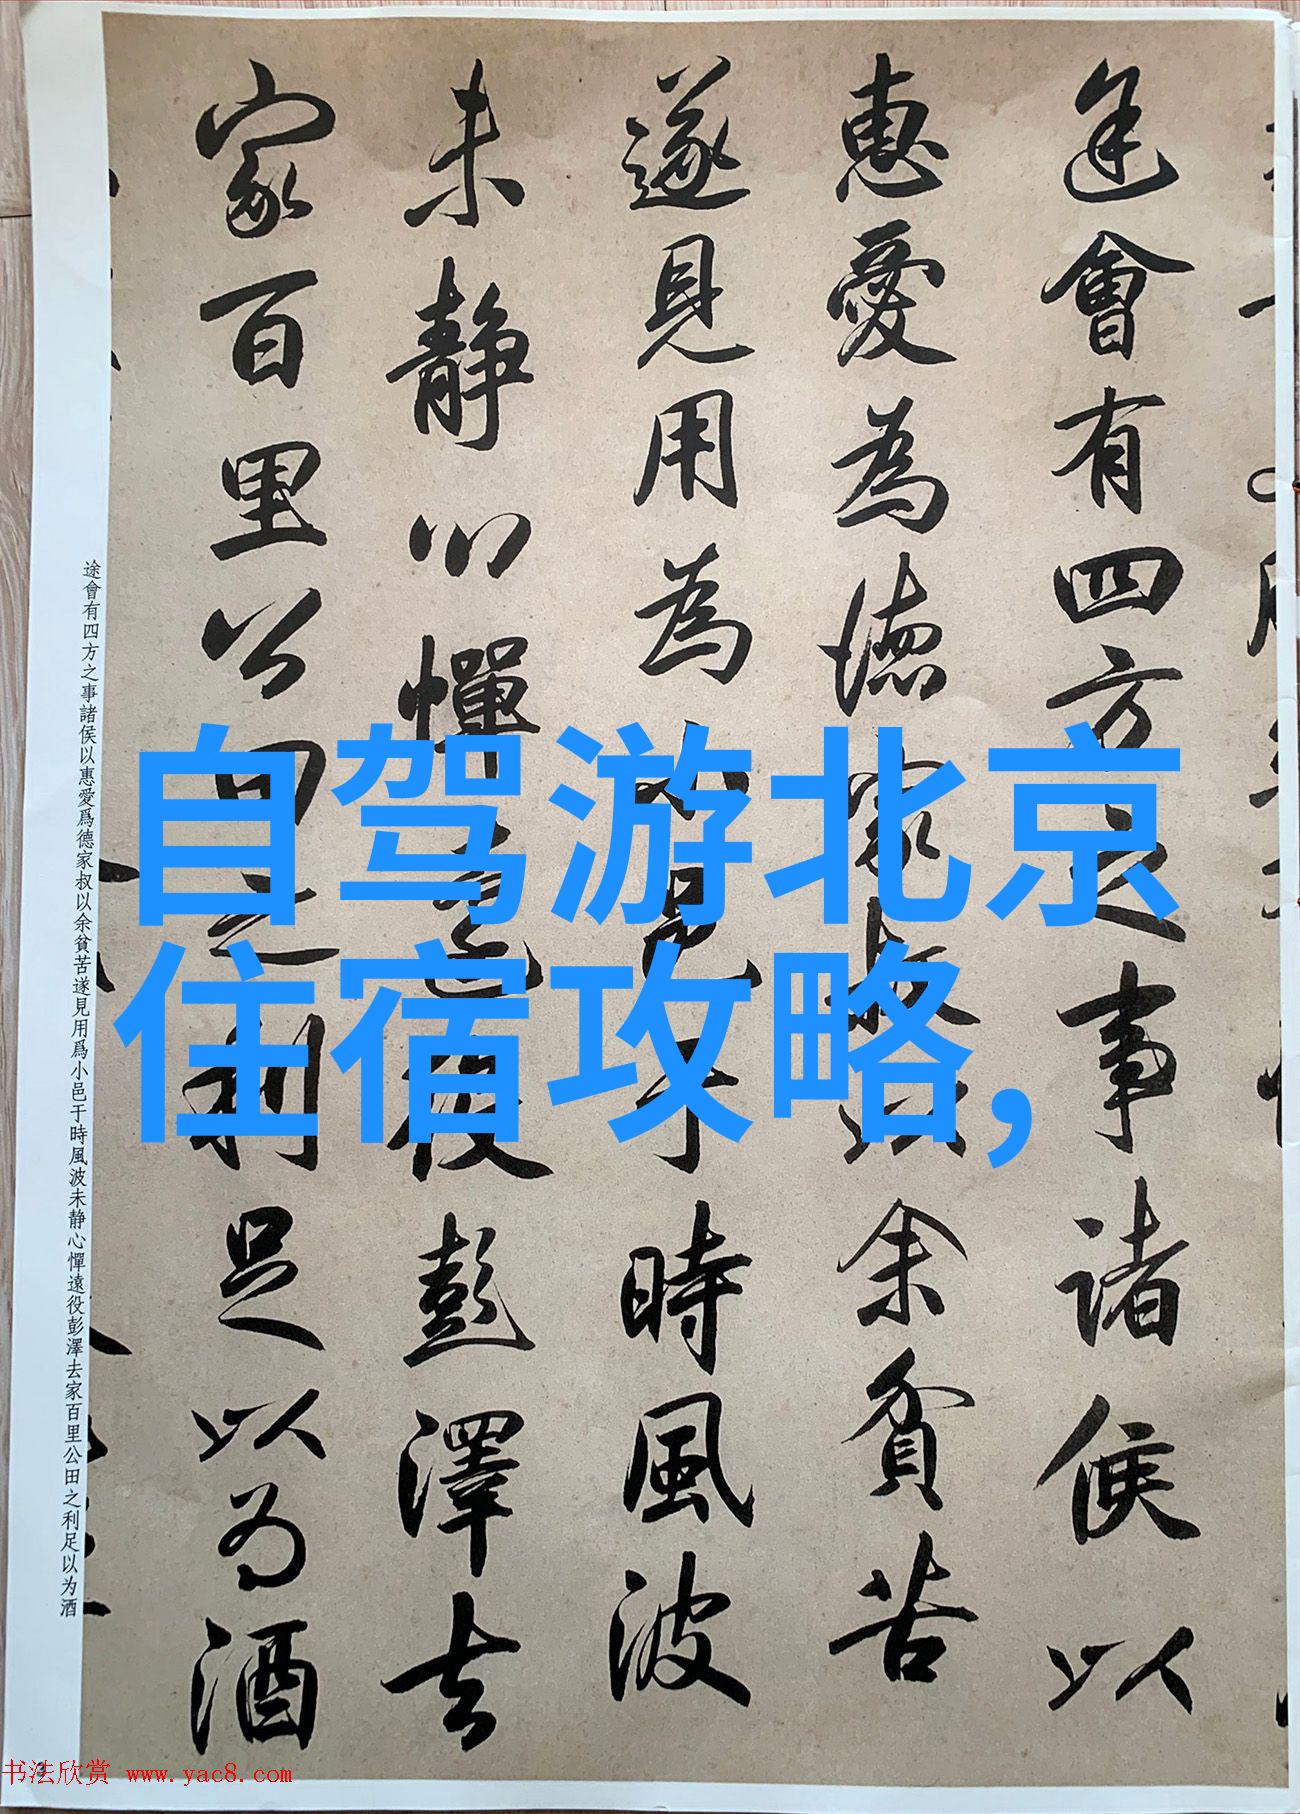 途會有四方之事諸侯以
惠愛為德家叔以余貧苦
遂見用為小邑于時風波
未静心憚遠役彭澤去
家百里公田之利足以為酒
途會有四方之事諸侯以惠愛爲德家叔以余貧苦遂見用爲小邑于時風波未静心憚遠役彭澤去家百里公田之利足以为酒
自驾游北京
住宿攻略,
书法欣赏 www.yac8.com